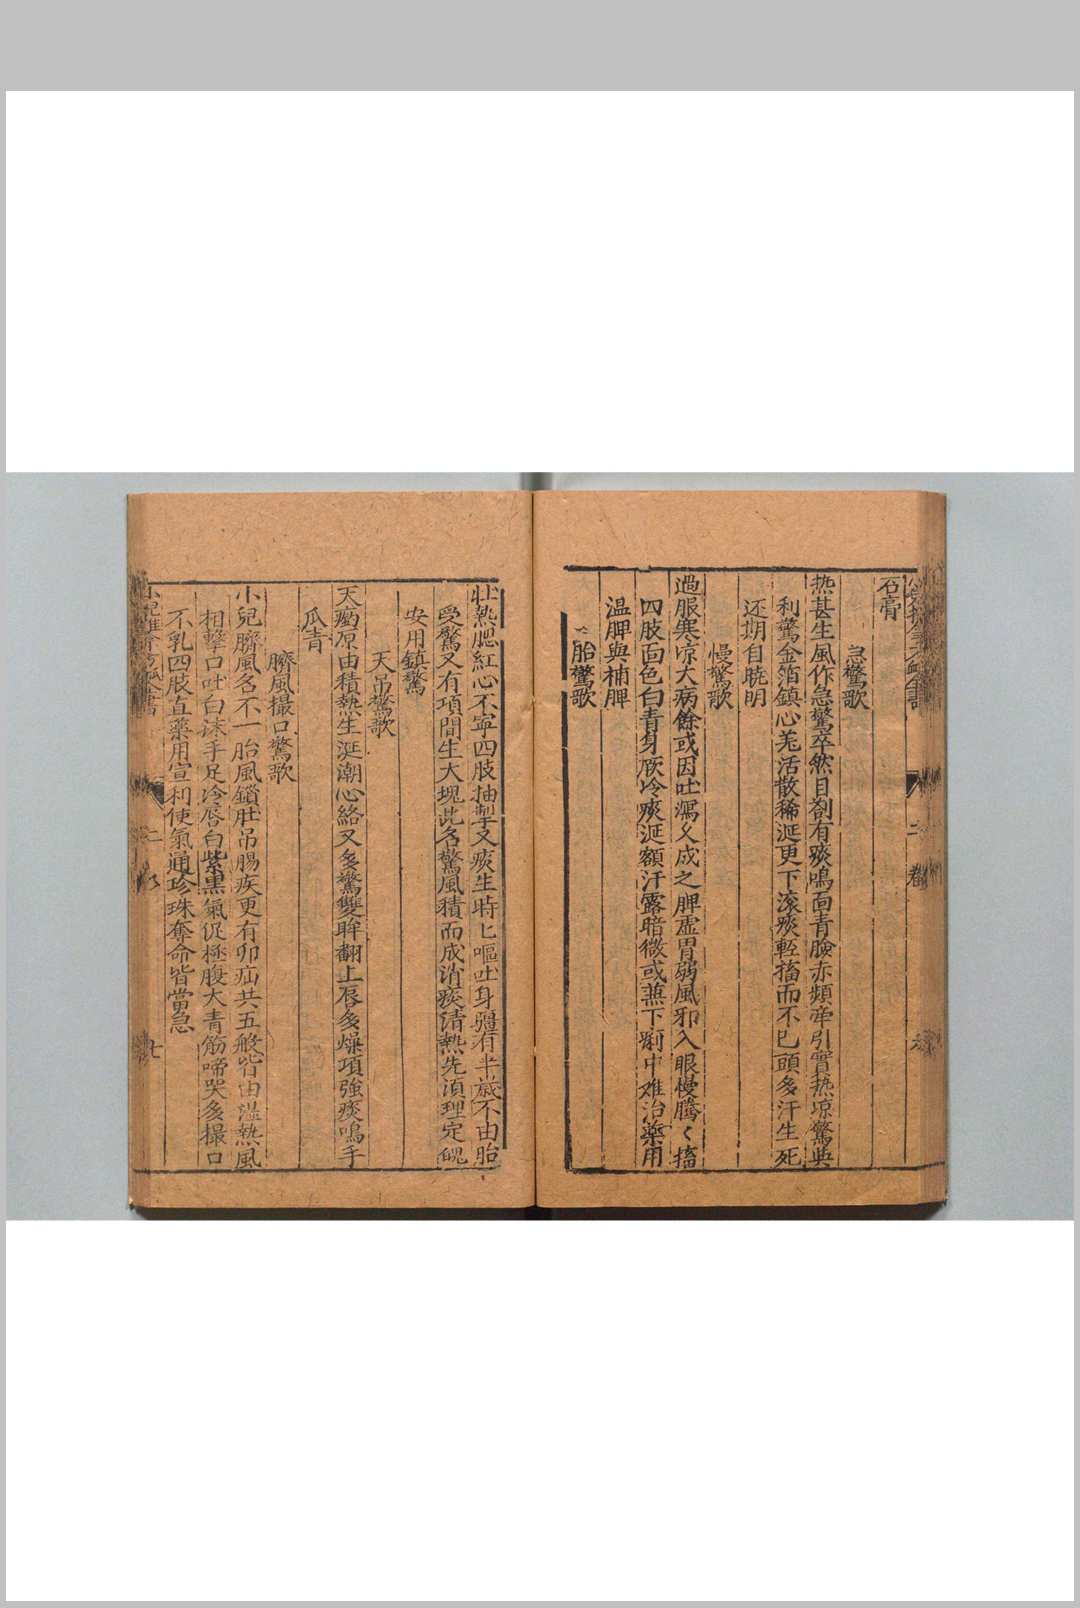 石膏
急驚歌
热甚生風作急驚卒然目劄有痰鳴面青臉赤頻牽引實热凉驚與
利驚金箔鎮心羌活散稀涎更下滚痰輕搐而不已頭多汗生死
还期自曉明
慢驚歌
過服寒凉大病餘或因吐瀉久成之脾虛胃弱風邪入眼慢騰〱搐
四肢面色白青身厥冷痰涎額汗露暗微或蒸下痢中难治藥用
温脾與補脾
胎驚歌
壮熱腮紅心不寕四肢抽掣又痰生時匕嘔吐身彊有半歲不由胎
受驚又有項間生大塊此名驚風積而成消痰清熱先須理定魄
安用鎮驚
天吊驚歌
天痫原由積熱生涎潮心絡又多驚雙眸翻上唇多燥項強痰鳴手
瓜青
臍風撮口驚歌
小兒臍風名不一胎風鎖肚吊腸疾更有卯疝共五般皆由溫熱風
相擊口吐白沫手足冷唇白紫黑氣促極腹大青筋啼哭多撮口
不乳四肢直藥用宣利使氣通珍珠奪命皆當急
七